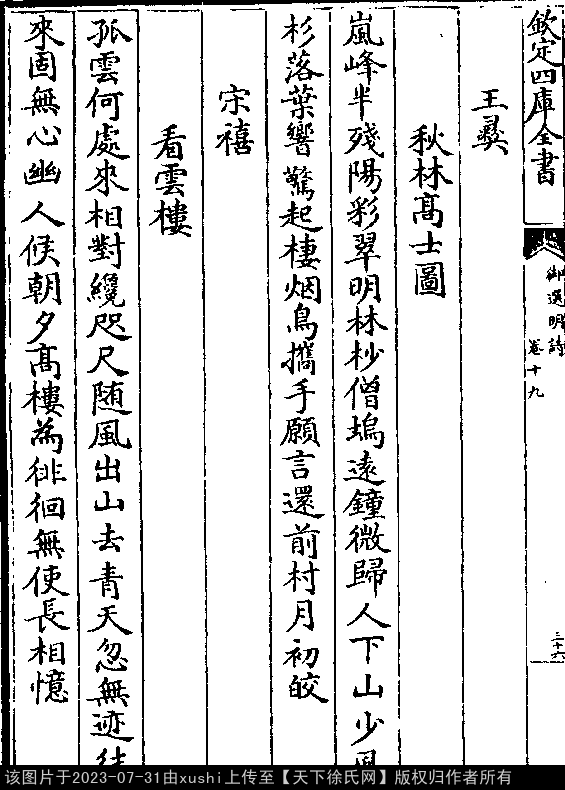 欽定四庫全書
御選明詩
卷十九
三十六
王彛
秋林髙士圖
嵐峰半殘陽彩翠明林杪僧塢遠鐘微歸人下山少風
杉落葉響驚起棲烟鳥攜手願言還前村月初皎
宋禧
看雲樓
孤雲何處來相對纔咫尺随風出山去青天忽無迹
來固無心幽人候朝夕髙樓為徘徊無使長相憶
该图片于2023-07-31由xushi上传至【天下徐氏网】版权归作者所有